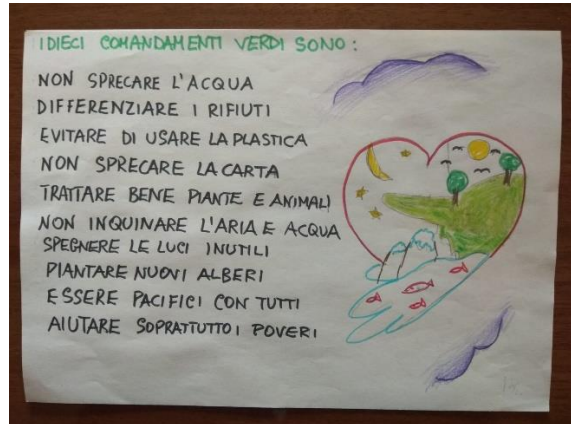 I DIECI COMANDAMENTI VERDI SONO:
NON SPRECARE L'ACQUA
DIFFERENZIARE I RIFIUTI
EVITARE DI USARE LA PLASTICA
NON SPRECARE LA CARTA
TRATTARE BENE PIANTE E ANIMALI
NON INQUINARE L'ARIA E ACQUA
SPEGNERE LE LUCI INUTILI
PIANTARE NUOVI ALBERI
ESSERE PACIFICI CON TUTTI
AIUTARE SOPRATTUTTO I POVERI